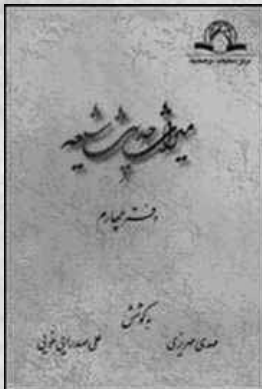 میراث حدیث شیعه
دفتر چهارم
به کوشش
مهدی مهریزی
علی صدرایی خویی